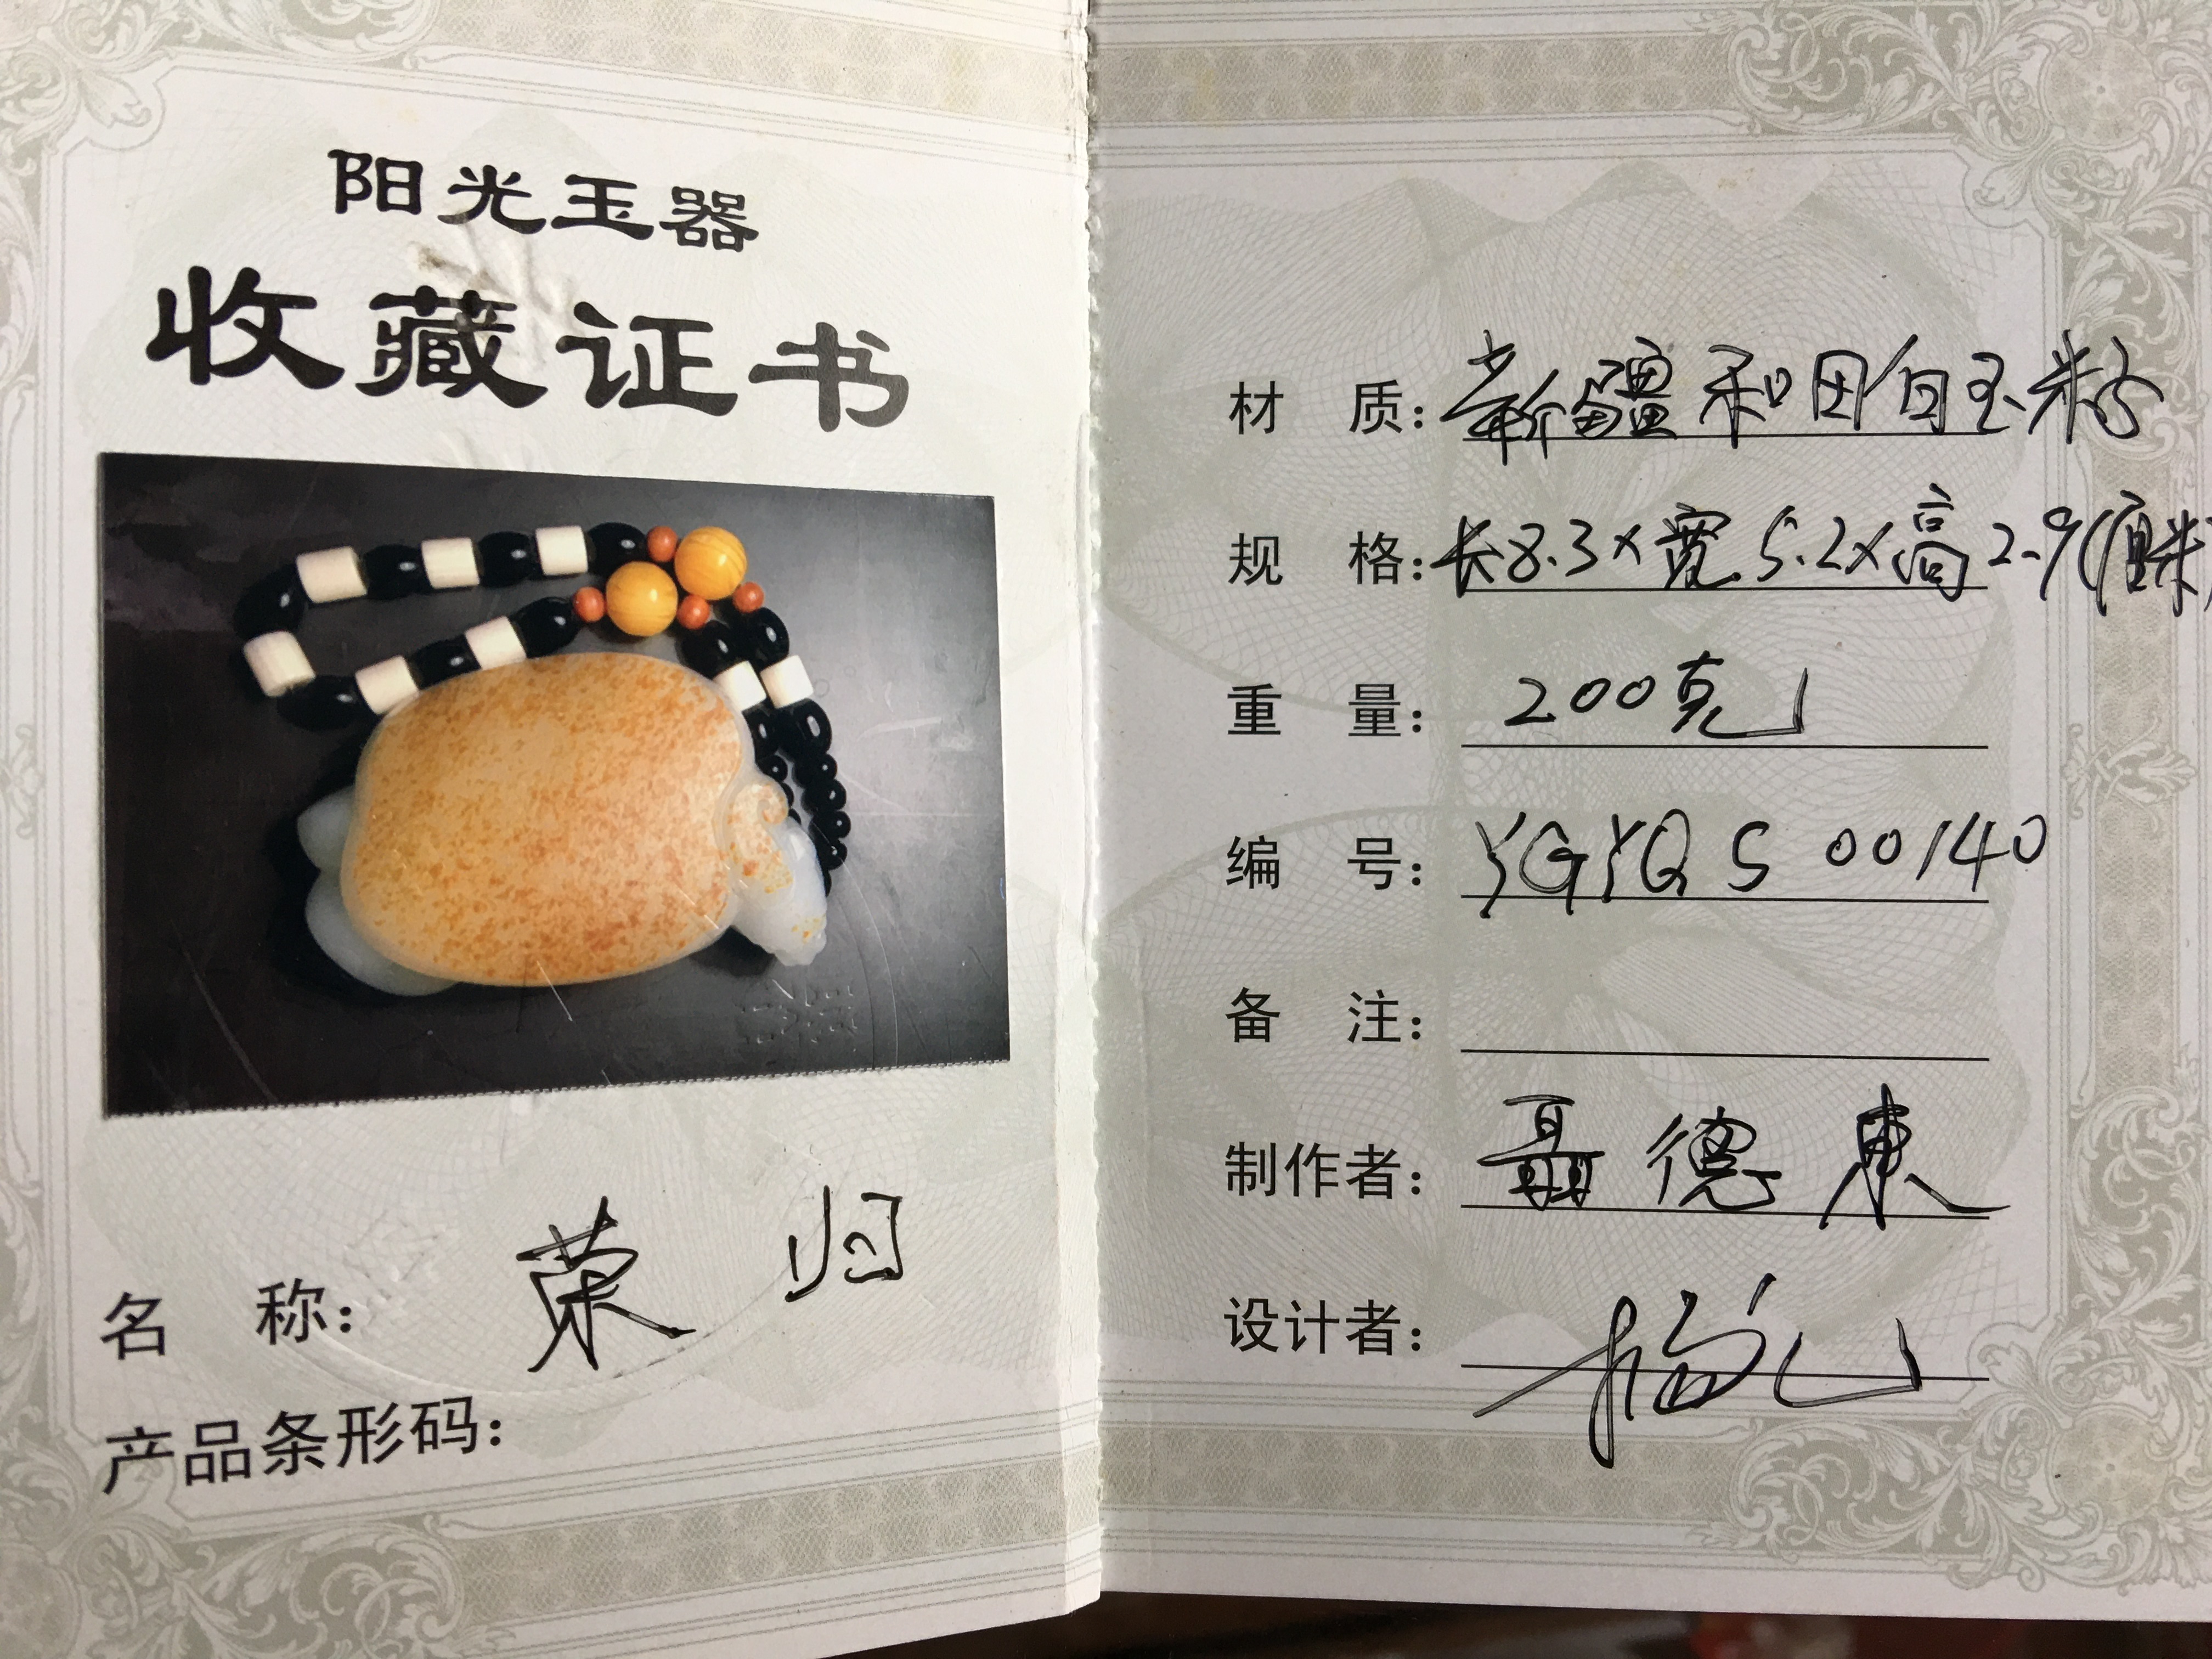 阳光玉器
收藏证书
名 称： 荣 归
产品条形码：
材 质： 新疆和田白玉籽
规 格： 长8.3×宽5.2×高2.9(厘米)
重 量： 200克
编 号： YGYQ S 00140
备 注：
制作者： 聂德東
设计者：